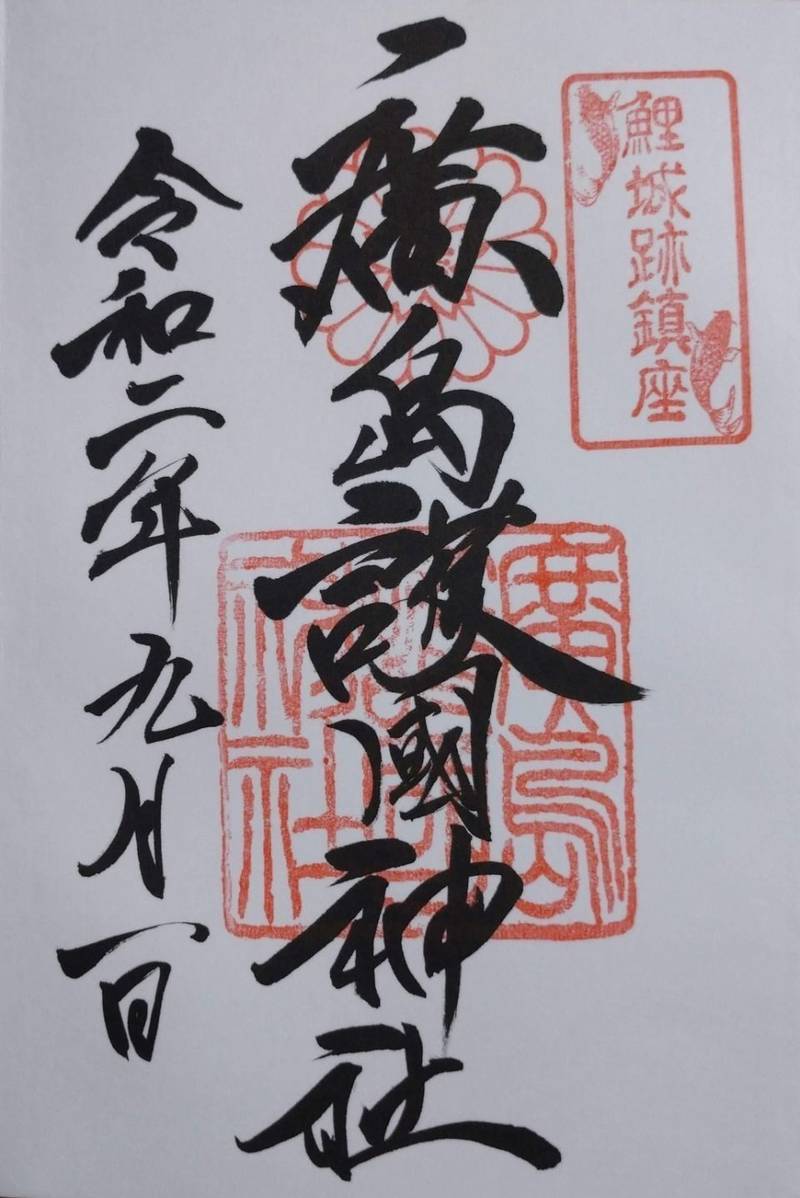 鯉城跡鎮座
廣島護國神社
令和二年九月一日
廣島
護國
神社